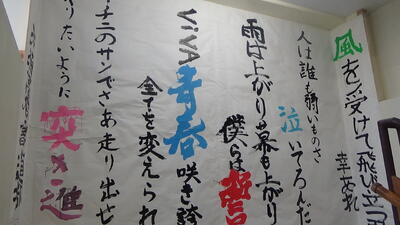 風を受けて飛び立つ
幸あれ
人は誰も脆いものさ
泣いてるんだ
雨は上がり幕も上がり
僕らは誓
ViVA青春咲き誇
全てを変えられ
ニのサンでさあ走り出せ
りたいように突き進